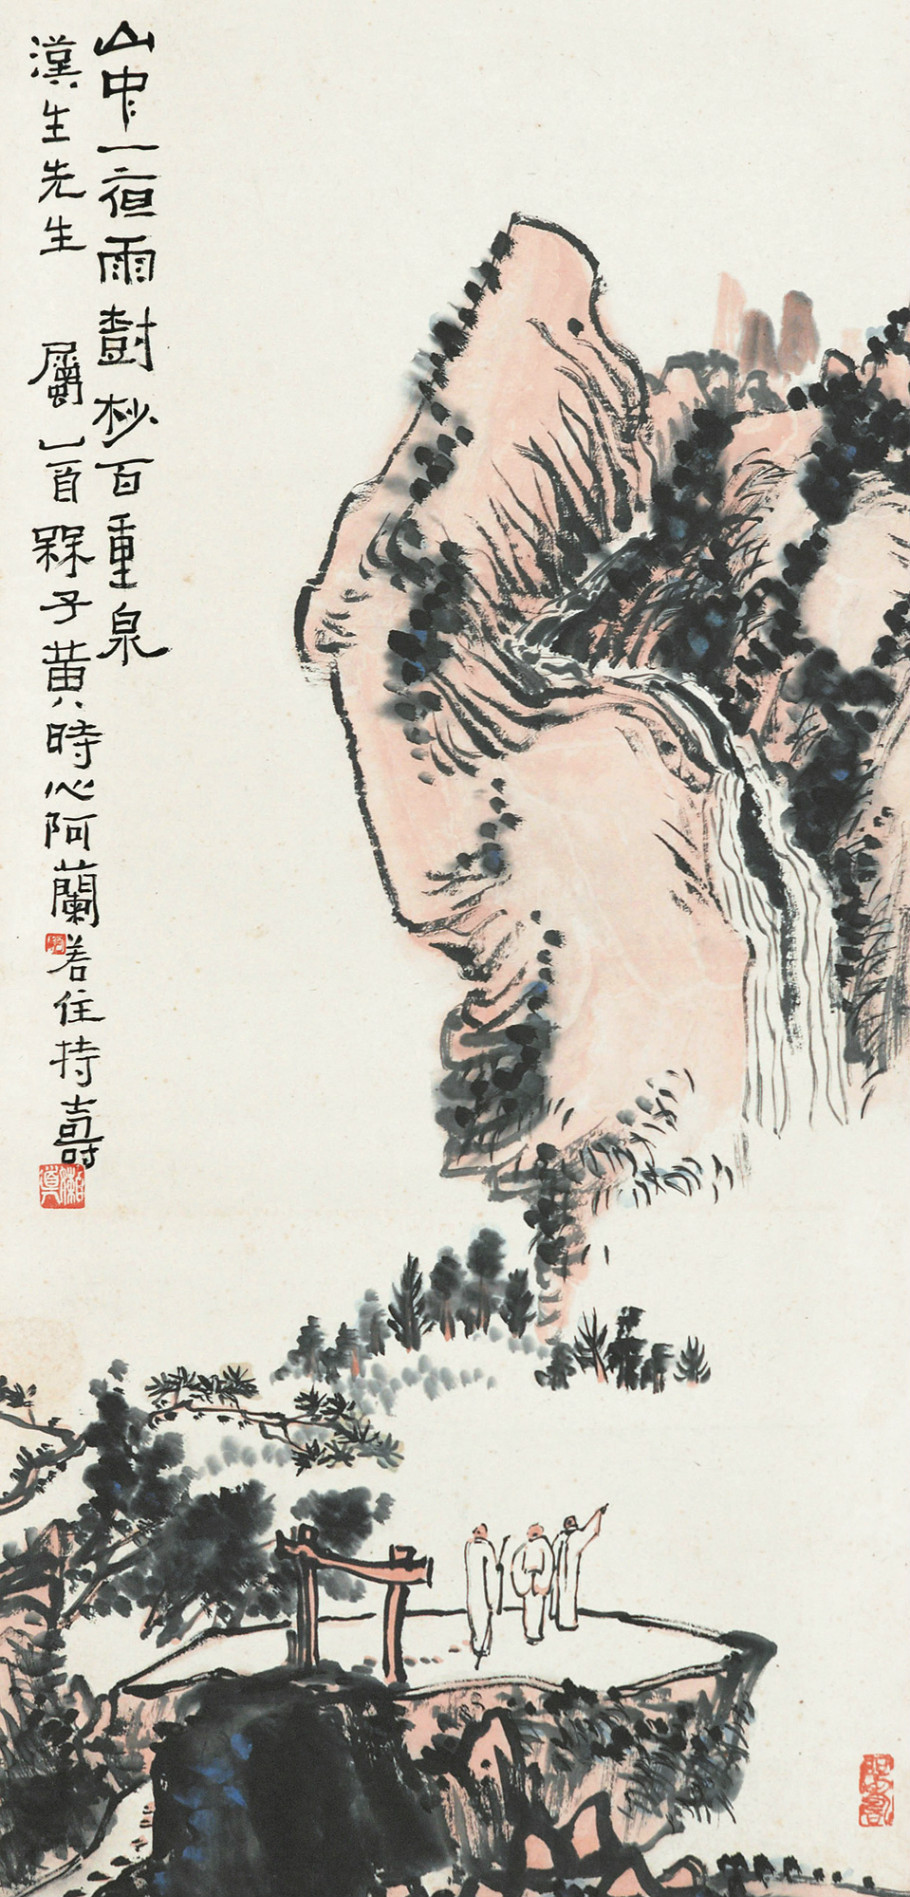 山中一夜雨樹杪百重泉
漢生先生 屬 乙酉 子黃時心阿蘭若住持壽